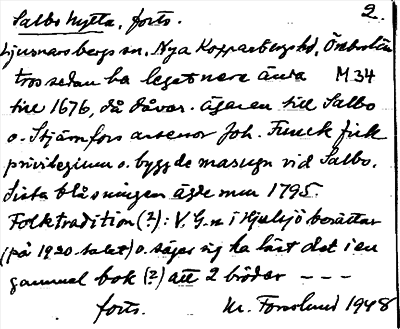 Salbo hytta, forts. 2.
Ljusnarsbergs sn, Nya Kopparbergs hd, Örebro län
tros sedan ha legat nere ända M 34
till 1676, då dåvar. ägaren till Salbo
o. Stjärnfors assessor Joh. Funck fick
privilegium o. byggde masugn vid Salbo.
Sista blåsningen ägde rum 1795.
Folktradition (?): V. G-n i Hjulsjö berättar
(på 1920-talet) o. säger sig ha läst det i en
gammal bok (?) att 2 bröder - - -
forts. M. Forslund 1948